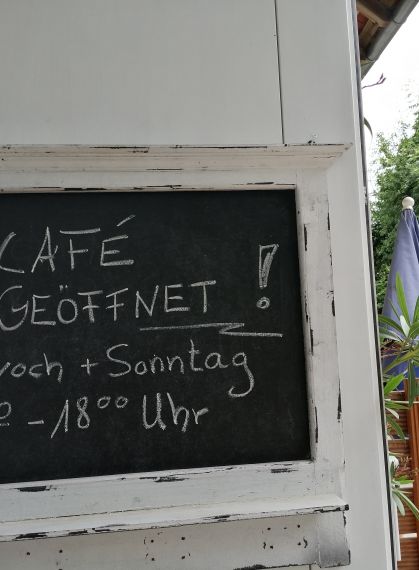 CAFÉ
GEÖFFNET !
woch + Sonntag
- 18⁰⁰ Uhr